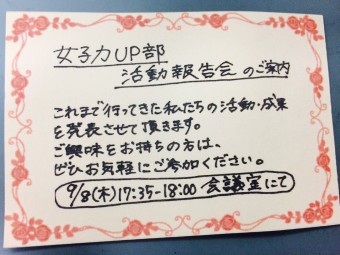 女子力UP部
活動報告会のご案内
これまで行ってきた私たちの活動・成果
を発表させて頂きます。
ご興味をお持ちの方は、
ぜひお気軽にご参加ください。
9/8(木)17:35-18:00 会議室にて